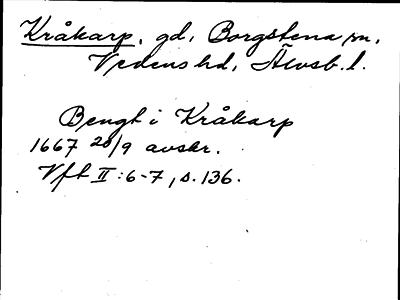 Kråkarp, gd, Borgstena sn,
Vedens hd, Älvsb. l.
Bengt i Kråkarp
1667 20/9 avskr.
Vft II: 6-7, s. 136.